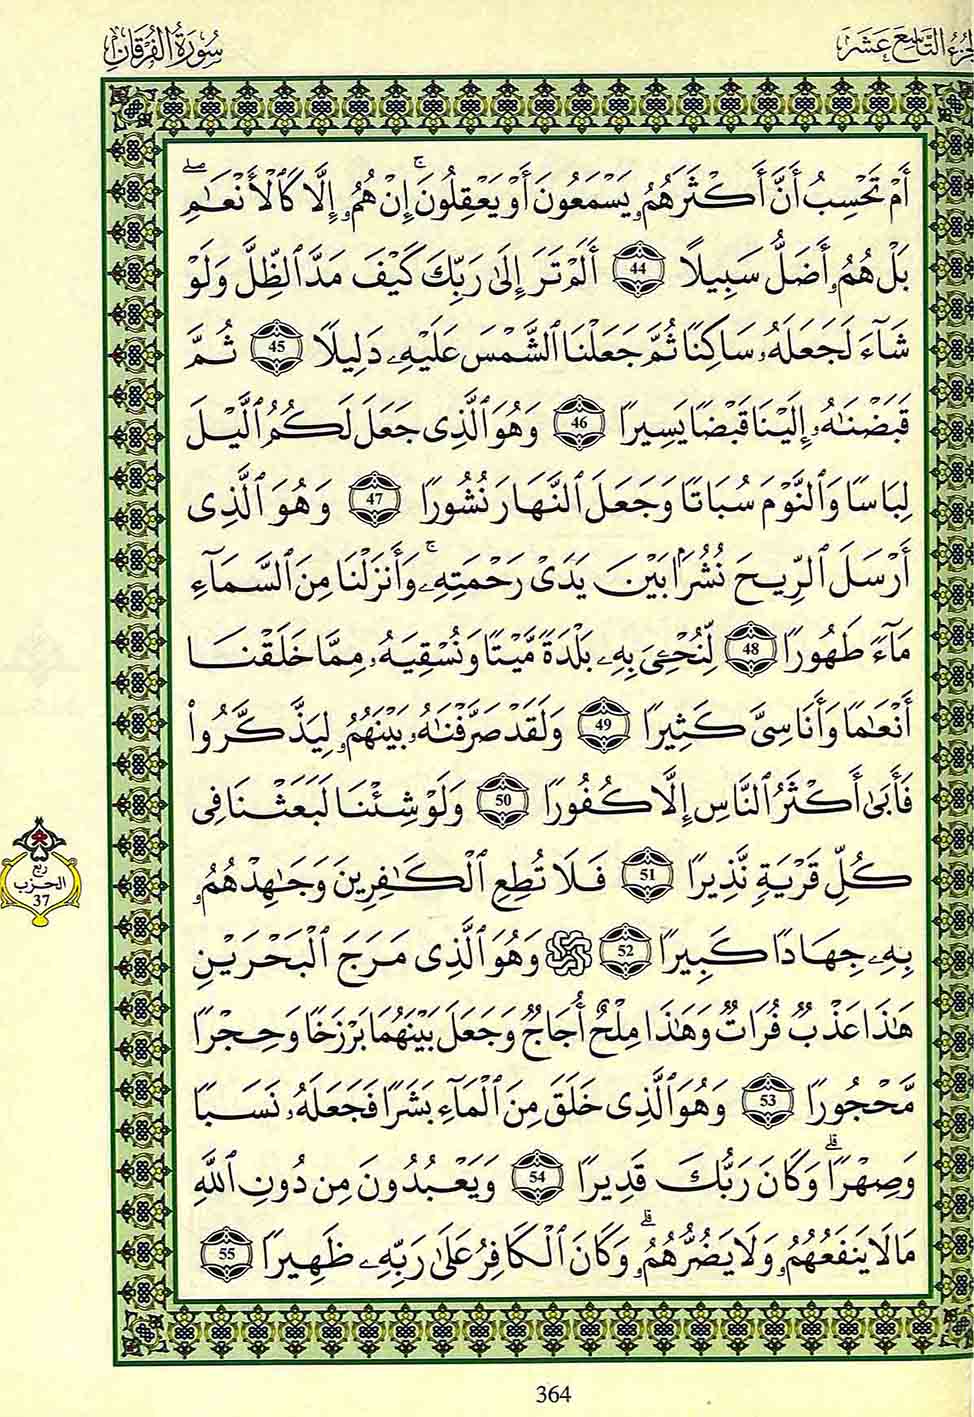 الجزء التاسع عشر
سورة الفرقان
أَمْ تَحْسِبُ أَنَّ أَكْثَرَهُمُۥ يَسْمَعُونَ أَوْ يَعْقِلُونَۚ إِنْ هُمُۥ إِلَّا كَٱلْأَنْعَٰمِۖ
بَلْ هُمُۥ أَضَلُّ سَبِيلًا 44 أَلَمْ تَرَ إِلَىٰ رَبِّكَ كَيْفَ مَدَّ ٱلظِّلَّ وَلَوْ
شَآءَ لَجَعَلَهُۥ سَاكِنًا ثُمَّ جَعَلْنَا ٱلشَّمْسَ عَلَيْهِۦ دَلِيلًا 45 ثُمَّ
قَبَضْنَٰهُۥ إِلَيْنَا قَبْضًا يَسِيرًا 46 وَهُوَ ٱلَّذِى جَعَلَ لَكُمُ ٱلَّيْلَ
لِبَاسًا وَٱلنَّوْمَ سُبَاتًا وَجَعَلَ ٱلنَّهَارَ نُشُورًا 47 وَهُوَ ٱلَّذِى
أَرْسَلَ ٱلرِّيحَ نُشُرًۢا بَيْنَ يَدَىْ رَحْمَتِهِۦۚ وَأَنزَلْنَا مِنَ ٱلسَّمَآءِ
مَآءً طَهُورًا 48 لِّنُحْـِۧىَ بِهِۦ بَلْدَةً مَّيْتًا وَنُسْقِيَهُۥ مِمَّا خَلَقْنَا
أَنْعَٰمًا وَأَنَاسِىَّ كَثِيرًا 49 وَلَقَدْ صَرَّفْنَٰهُۥ بَيْنَهُمُۥ لِيَذَّكَّرُواْ
فَأَبَىٰ أَكْثَرُ ٱلنَّاسِ إِلَّا كُفُورًا 50 وَلَوْ شِئْنَا لَبَعَثْنَا فِى
كُلِّ قَرْيَةٍ نَّذِيرًا 51 فَلَا تُطِعِ ٱلْكَٰفِرِينَ وَجَٰهِدْهُمُۥ
بِهِۦ جِهَادًا كَبِيرًا 52 وَهُوَ ٱلَّذِى مَرَجَ ٱلْبَحْرَيْنِ
هَٰذَا عَذْبٌ فُرَاتٌ وَهَٰذَا مِلْحٌ أُجَاجٌ وَجَعَلَ بَيْنَهُمَا بَرْزَخًا وَحِجْرًا
مَّحْجُورًا 53 وَهُوَ ٱلَّذِى خَلَقَ مِنَ ٱلْمَآءِ بَشَرًا فَجَعَلَهُۥ نَسَبًا
وَصِهْرًاۗ وَكَانَ رَبُّكَ قَدِيرًا 54 وَيَعْبُدُونَ مِن دُونِ ٱللَّهِ
مَا لَا يَنفَعُهُمُۥ وَلَا يَضُرُّهُمُۥۗ وَكَانَ ٱلْكَافِرُ عَلَىٰ رَبِّهِۦ ظَهِيرًا 55
ربع
الحزب
37
364